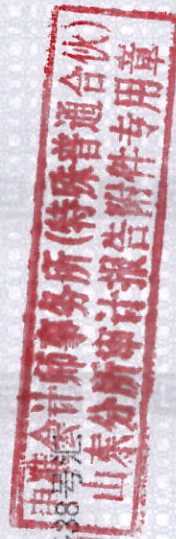 中准会计师事务所(特殊普通合伙)
山东分所审计报告附件专用章
38号